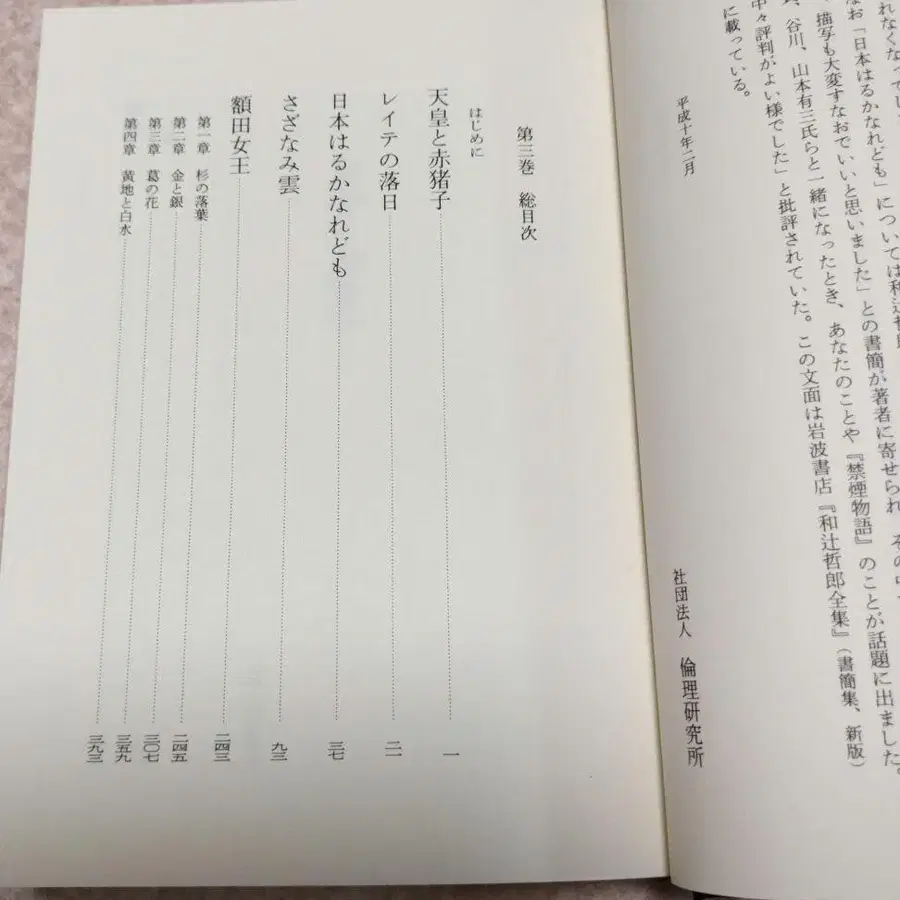 れなくなってし
なお「日本はるかなれども」については和辻哲
、描写も大変すなおでいいと思いました」との書簡が著者に寄せられ、その
、谷川、山本有三氏らと一緒になったとき、あなたのことや『禁煙物語』のことが話題に出ました。
中々評判がよい様でした」と批評されていた。この文面は岩波書店『和辻哲郎全集』(書簡集、新版)
に載っている。
平成十年二月
社団法人 倫理研究所
第三巻 総目次
はじめに
天皇と赤猪子……一
レイテの落日……二一
日本はるかなれども……三七
さざなみ雲……九三
額田女王……二四三
第一章 杉の落葉……二四五
第二章 金と銀……三〇七
第三章 葛の花……三五九
第四章 黄地と白水……三九三